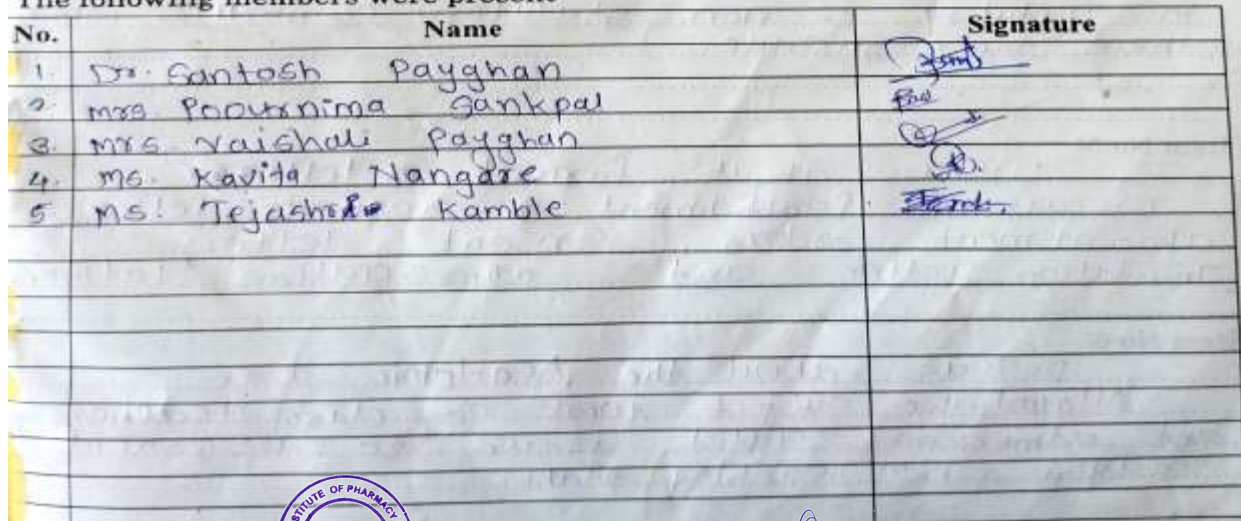 The following members were present
No. Name Signature
1. Dr. Santosh Payghan
2. mrs Poournima Sankpal
3. mrs Vaishali Payghan
4. ms. Kavita Nangare
5 ms. Tejashri Kamble
INSTITUTE OF PHARMACY